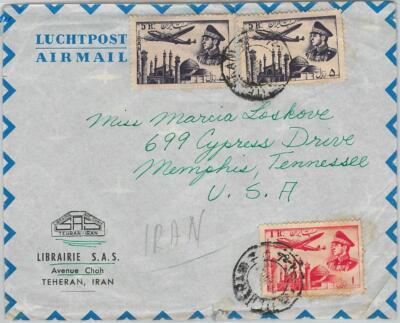 LUCHTPOST
AIRMAIL
5 R.
5 R.
Miss Marcia Loskove
699 Cypress Drive
Memphis, Tennessee
U. S. A
IRAN
SAS
TEHRAN-IRAN
LIBRAIRIE S.A.S.
Avenue Chah
TEHERAN, IRAN
1 R.